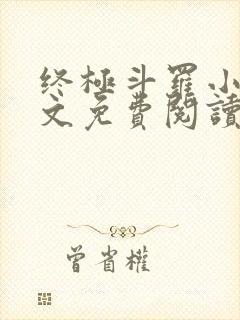 终极斗罗小
文免費閱讀
曾省權